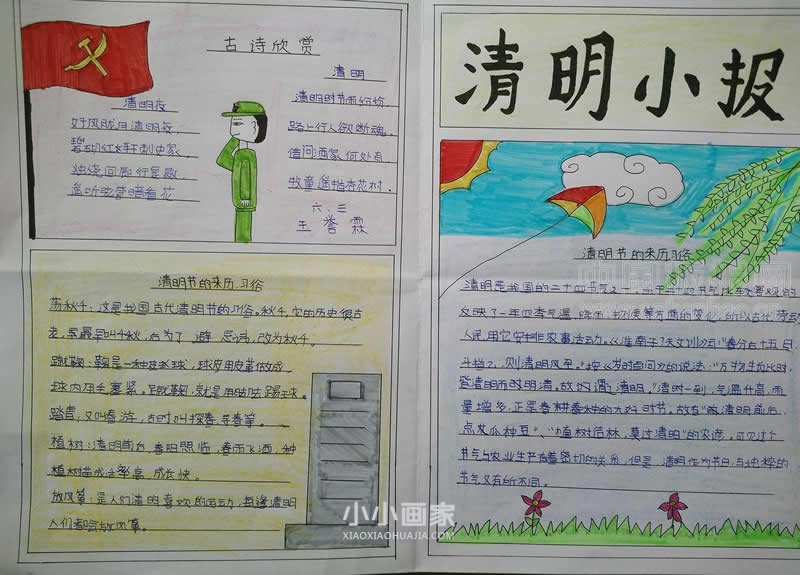 古诗欣赏
清明夜
好风胧月清明夜,
碧砌红轩刺史家。
独绕回廊行复歇
遥听弦管暗看花
清明
清明时节雨纷纷
路上行人欲断魂。
借问酒家何处有
牧童遥指杏花村。
六、三
王誉霖
清明节的来历、习俗
荡秋千:这是我国古代清明节的习俗。秋千,它的历史很古
老,最早叫千秋,后为了 避 忌讳,改为秋千。
蹴鞠:鞠是一种皮球,球皮用皮革做成
球内用毛塞紧。蹴鞠,就是用足去踢球。
踏青,又叫春游,古时叫探春、寻春等。
植树:清明前后,春阳照临,春雨飞洒,种
植树苗成活率高,成长快。
放风筝:是人们清明喜欢的运动,每逢清明
人们都会放风筝。
小小画家
XIAOXIAOHUAJIA.COM
清明小报
清明节的来历习俗
清明是我国的二十四节气之一
反映了一年四季气温、降雨、物候等方面的变化,所以古代劳动
人民用它安排农事活动。《淮南子·天文训》云:"春分后十五日,
斗指乙,则清明风至。"按《岁时百问》的说法:"万物生长此时,
皆清明而明清,故谓之清明。"清明一到,气温升高,雨
量增多,正是春耕春种的大好时节。故有"清明前后,
点瓜种豆"、"植树造林,莫过清明"的农谚。可见这个
节气与农业生产有着密切的关系。但是,清明作为节日,与纯粹的
节气又有所不同。